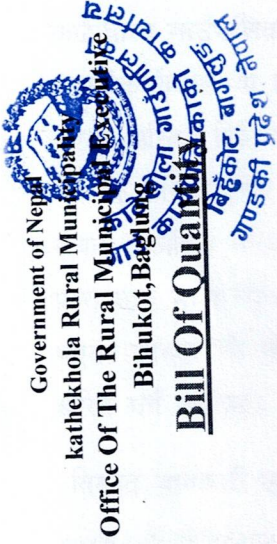 Government of Nepal
kathekhola Rural Municipality
Office Of The Rural Municipal Executive
Bihukot,Baglung
Bill Of Quantity
गाउँपालिकाको कार्यालय
बिहुँकोट, बागलुङ
गण्डकी प्रदेश, नेपाल